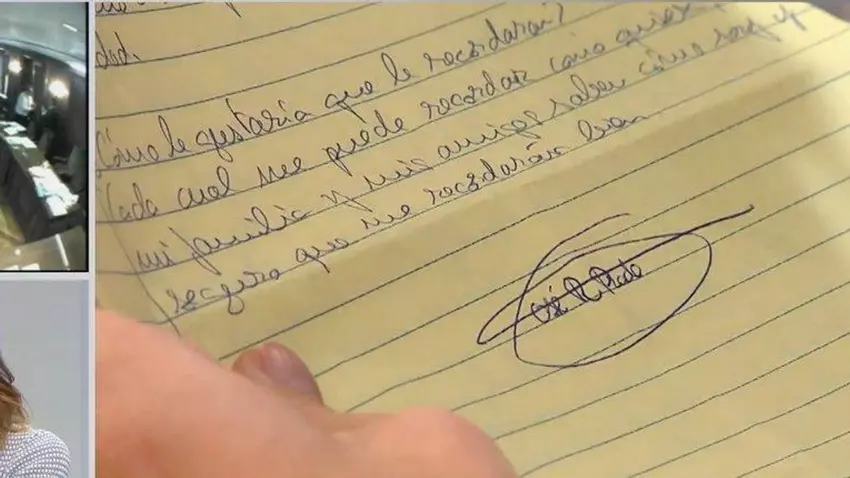 dad.
Cómo le gustaría que le recordaran?
Cada cual me puede recordar como quiera
mi familia y mis amigos saben cómo soy y
seguro que me recordarán bien
José R. Prada